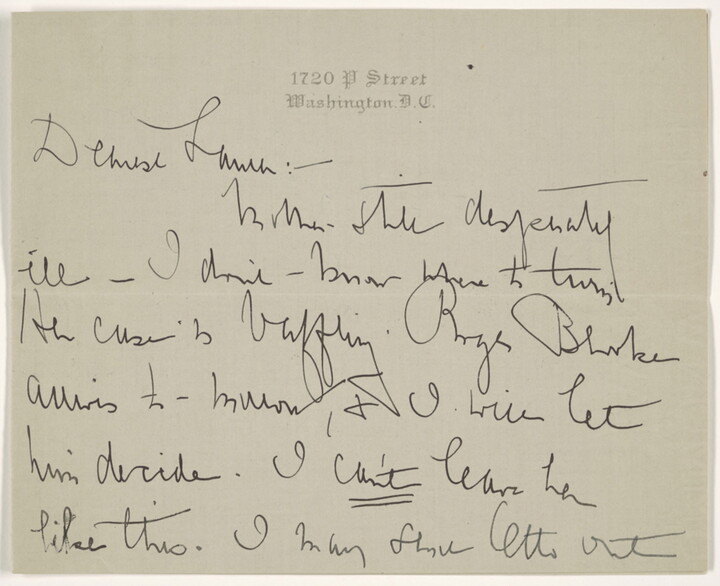 1720 P Street
Washington. D.C.
Dearest Laura:—
Mother still desperately
ill — I don't — know where to turn
Her case is baffling. Roger Brooke
arrives to-morrow, & I will let
him decide. I can't leave her
like this. I may send Otto out